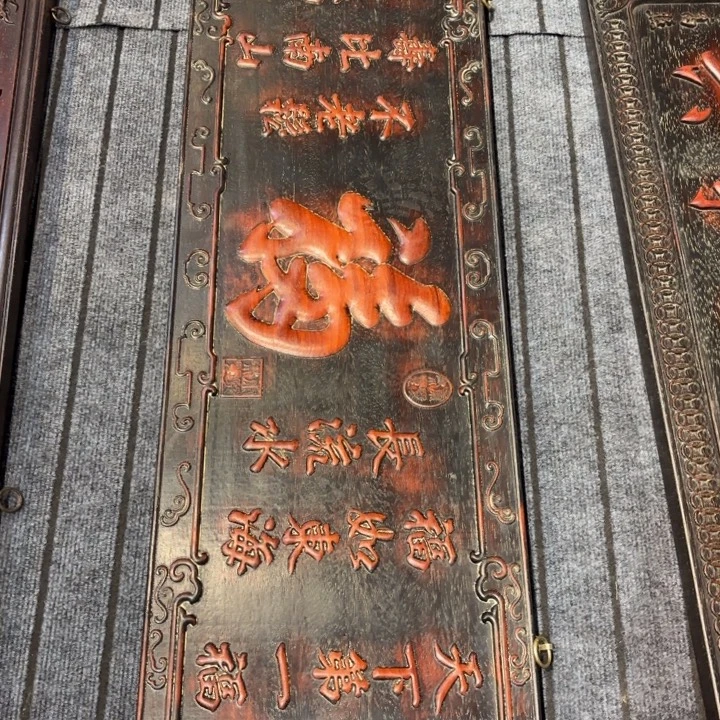 天下第一福
福如東海
長流水
福
不老松
壽比南山